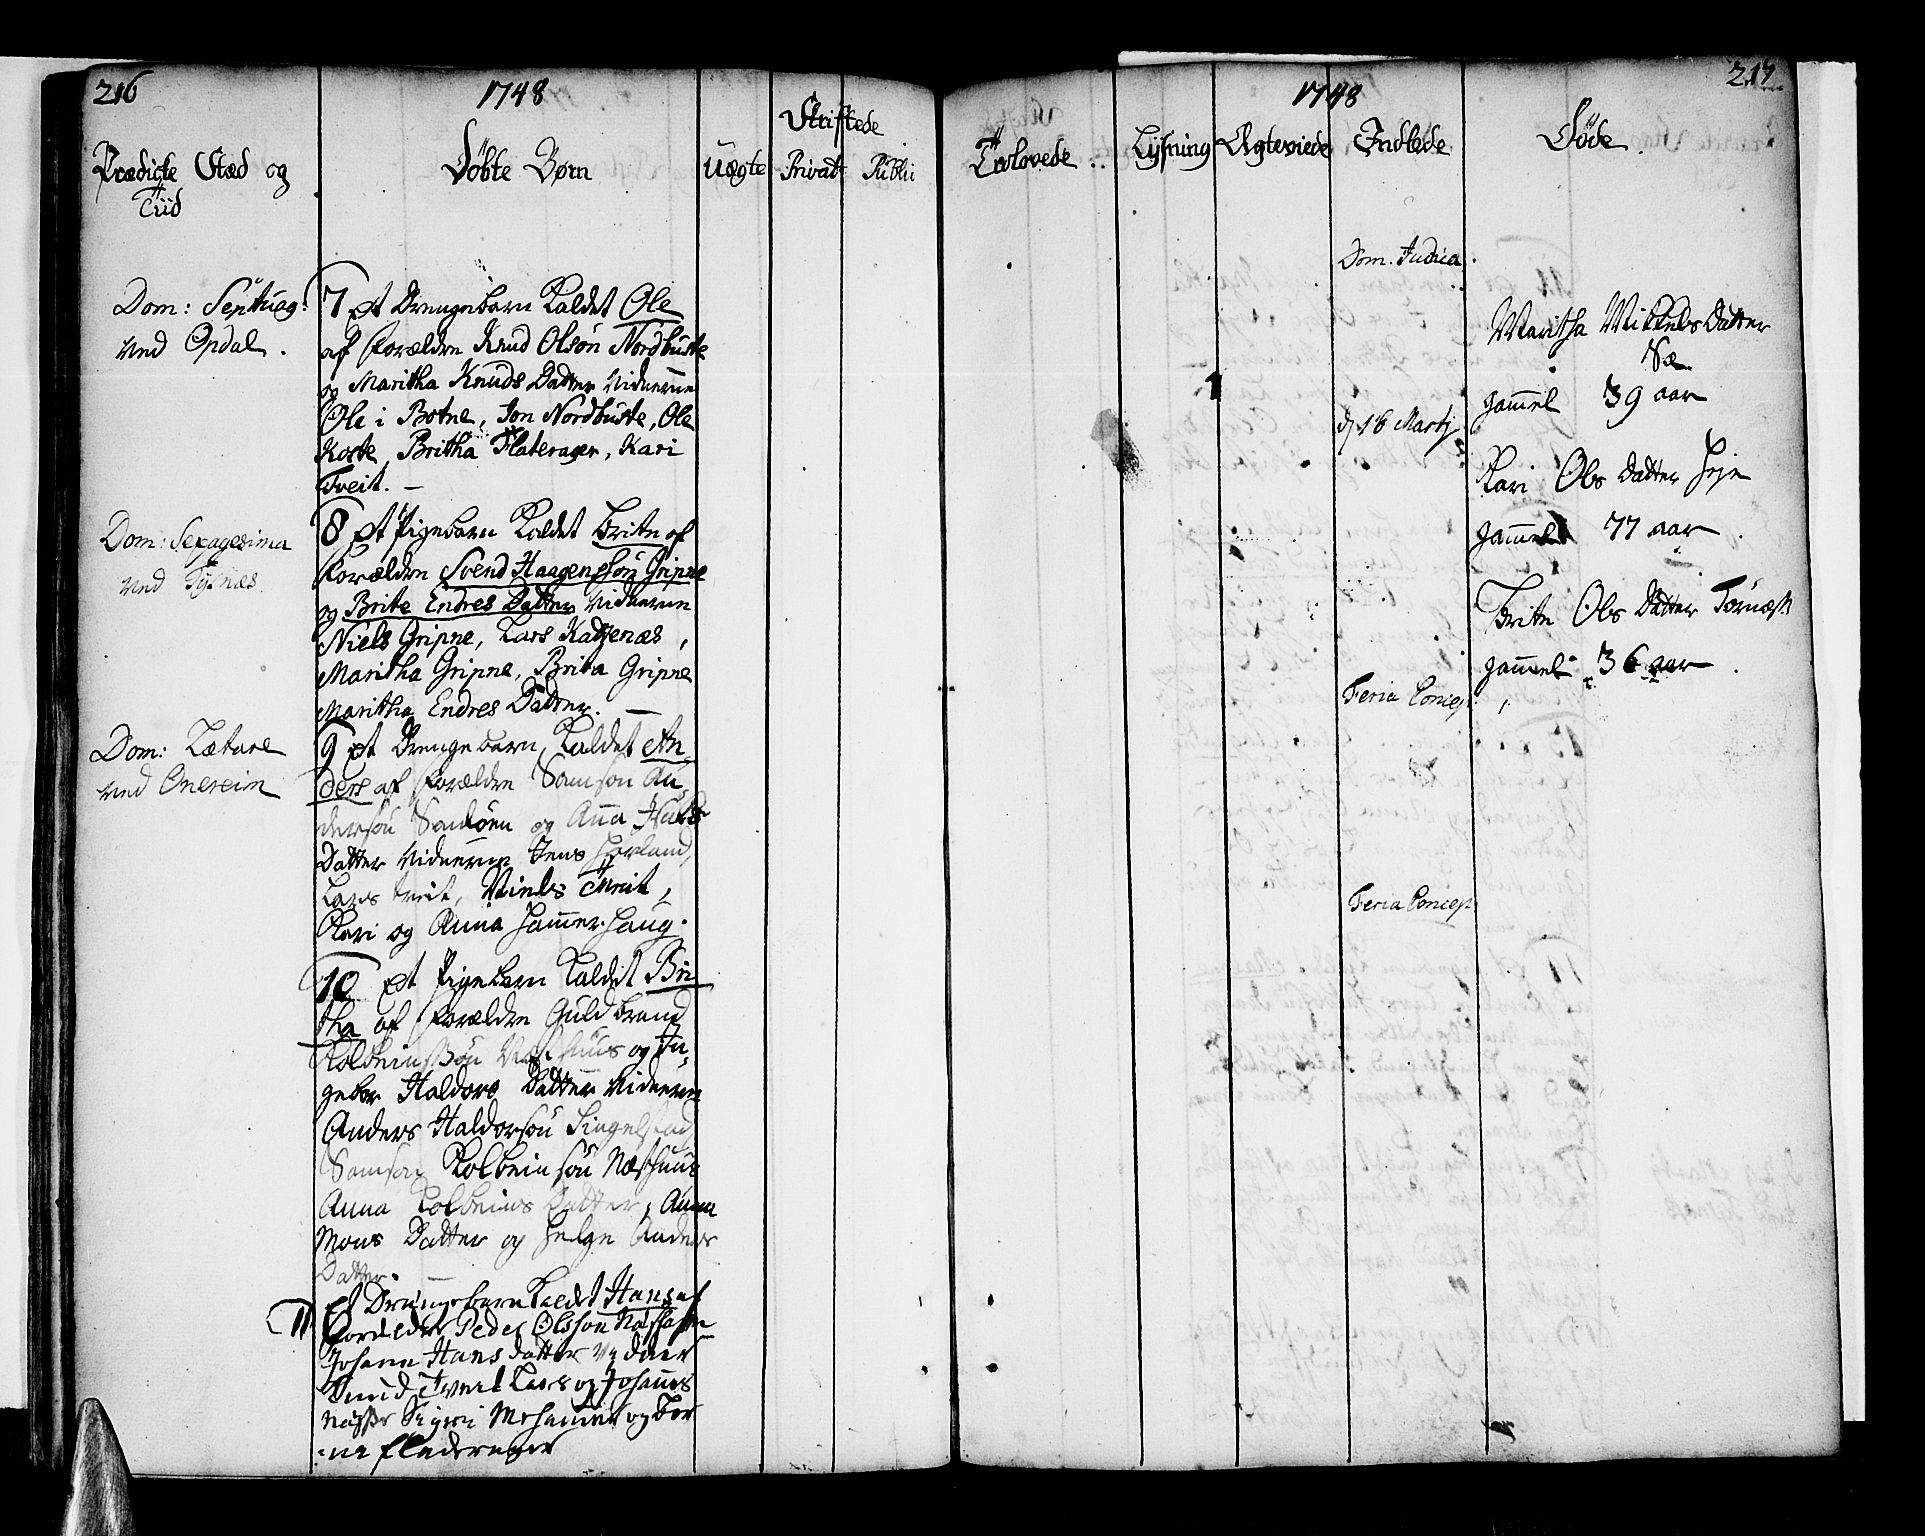 216
1748
Skriftede
Prædicke Stæd og
Tiid
Døbte Børn
Uægte
Privat
Publi
Dom: Septuag:
ved Opdal.
7 Et Drengebarn kaldet Ole
af Forældre Knud Olsøn Nordhuste
og Maritha Knuds Datter vidnerne
Ole i Botne, Jon Nordhuste, Ole
Koste, Britha Flaterager, Kari
Tveit. —
Dom: Sexagesima
ved Tysnæs
8 Et Pigebarn kaldet Brite af
Forældre Svend Haagensøn Gripne
og Brite Endres Datter vidnerne
Niels Gripne, Lars Kadzenæs,
Maritha Gripne, Brita Gripne
Maritha Endres Datter. —
Dom: Lætare
ved Onereim
9 Et Drengebarn kaldet An
ders af Forældre Samson An
dersøn Sandøen og Anna
Datter vidnerne Jens Horland,
Lars Tveit, Niels Tveit,
Kari og Anna Hammerhaug.
10 Et Pigebarn kaldet Bri
tha af Forældre Guldbrand
Kolbeinssøn Næshuus og In¬
gebor Haldors Datter vidnerne
Anders Haldorsøn Singelstad
Samson Kolbeinsøn Næshuus
Anna Kolbeins Datter, Anna
Mons Datter og Helge Anders
Datter. —
11 Et Drengebarn kaldet Hans af
Forældre Peder Olsson
Johanne Hans datter vidner
Knud Tveit Lars og Johannes
Sigri og Bor
Fladerager
1748
217
Trolovede.
Lysning
Ægteviede
Indlede
Døde.
Dom. Judica.
Maritha Mikkels Datter
Næ
gammel 39 aar
1
d. 16 Martj
Kari Ols Datter Heje
gammel 77 aar.
Brite Ols Datter Tornæs
gammel 36 aar.
Feria Concep.
Feria Concep.